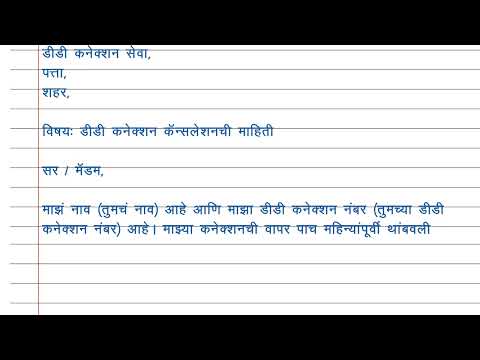 डीडी कनेक्शन सेवा,
पत्ता,
शहर,
विषयः डीडी कनेक्शन कॅन्सलेशनची माहिती
सर / मॅडम,
माझं नाव (तुमचं नाव) आहे आणि माझा डीडी कनेक्शन नंबर (तुमच्या डीडी
कनेक्शन नंबर) आहे। माझ्या कनेक्शनची वापर पाच महिन्यांपूर्वी थांबवली